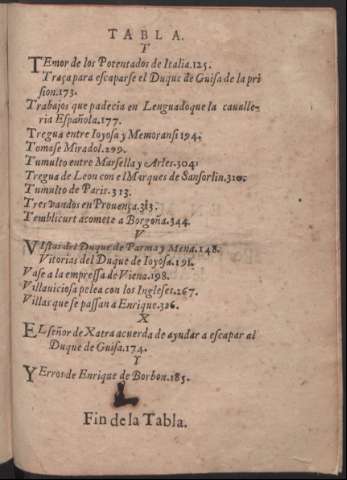 TABLA.
T
TEmor de los Potentados de Italia.125.
Traça para escaparse el Duque de Guisa de la pri
sion.173.
Trabajos que padecia en Lenguadoque la cavalle-
ria Española.177.
Tregua entre Ioyosa y Memoransi 194.
Tomase Miradol.299.
Tumulto entre Marsella y Arles.304.
Tregua de Leon con el Marques de Sansorlin.310.
Tumulto de Paris.313.
Tres vandos en Provença.313.
Temblicurt acomete a Borgoña.344.
V
VIstas del Duque de Parma y Mena.148.
Vitorias del Duque de Ioyosa.191.
Vase a la empressa de Viena.198.
Villaviciosa pelea con los Ingleses.267.
Villas que se passan a Enrique.326.
X
EL señor de Xatra acuerda de ayudar a escapar al
Duque de Guisa.174.
Y
YErros de Enrique de Borbon.185.
Fin de la Tabla.